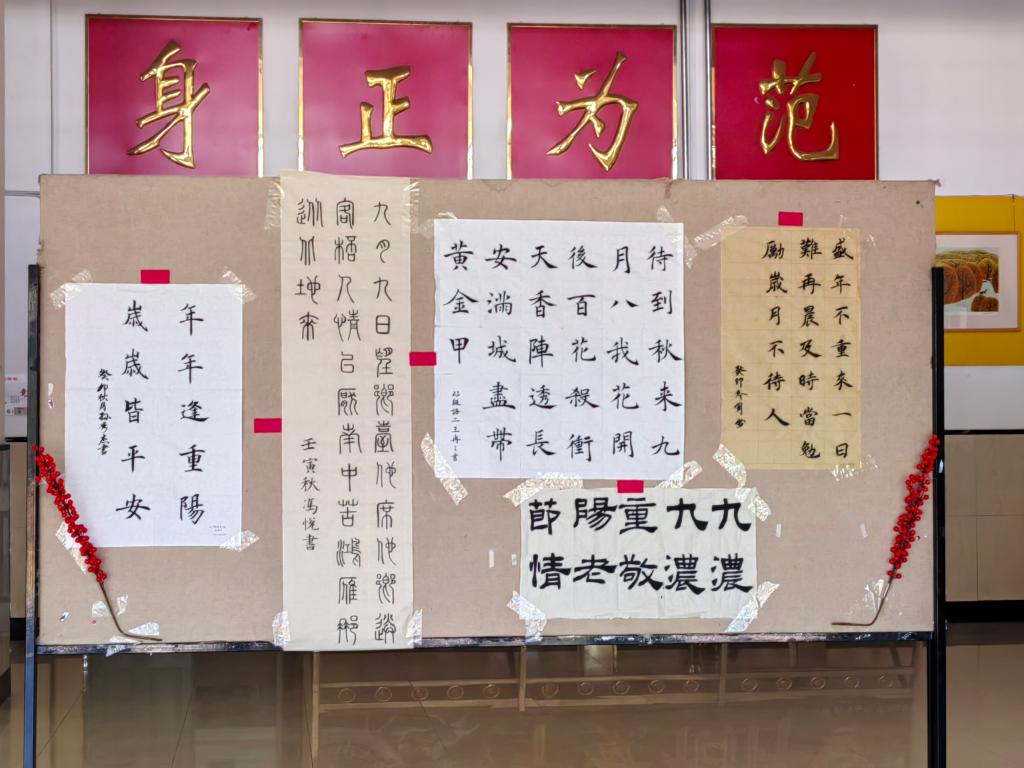 身正为范
年年逢重陽
歳歳皆平安
九月九日望鄉臺他席他鄉送
客桮人情已厭南中苦鴻雁那
從北地來
壬寅秋馮悦書
待到秋来九
月八我花開
後百花殺衝
天香陣透長
安滿城盡帶
黃金甲
盛年不重來一日
難再晨及時當勉
勵歲月不待人
九濃
九濃
重敬
陽老
節情